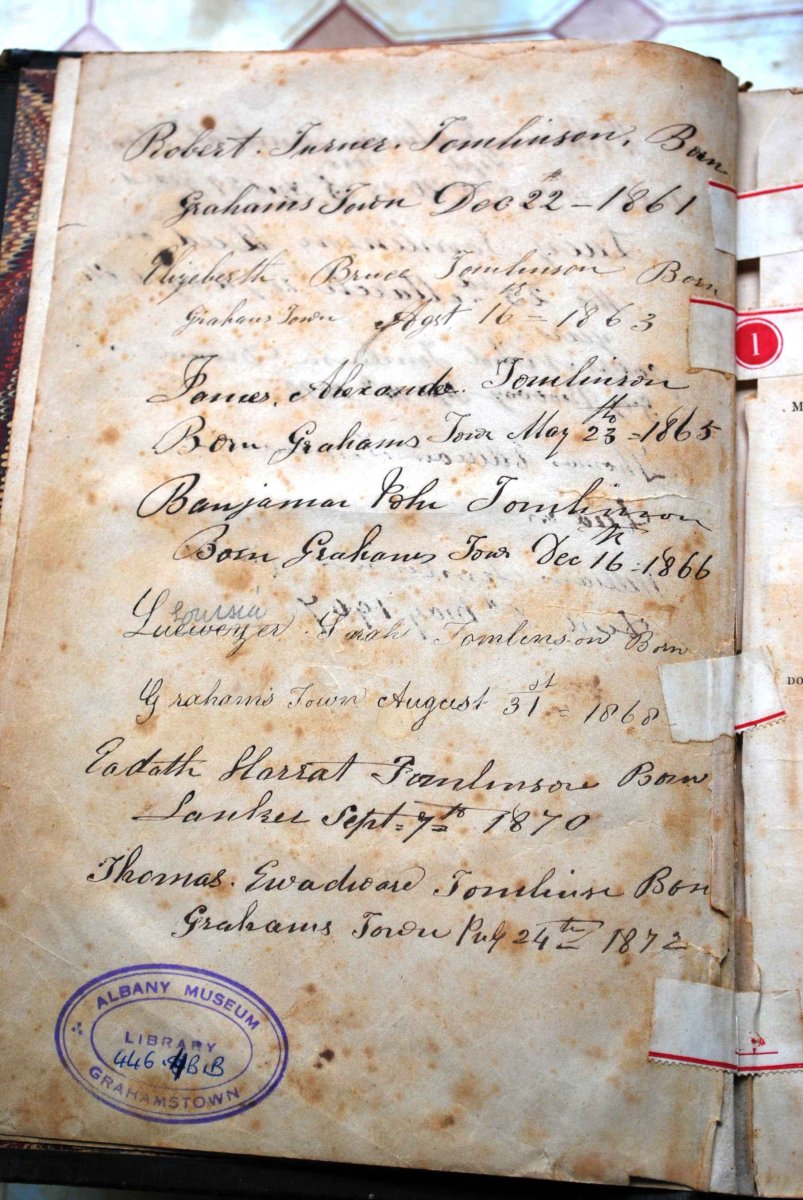 Robert. Turner. Tomlinson, Born
Grahams Town Dec 22th – 1861
Elizeberth. Bruce Tomlinson Born
Grahams Town Agst 16th = 1863
James, Alexander Tomlinson
Born Grahams Town May 23th = 1865
Banjaman John Tomlinson
Born Grahams Town Dec 16th = 1866
Louisia
Sarah Tomlinson Born
Graham's Town August 31st = 1868
Eadath Harrat Tomlinson Born
Sept = 7th 1870
Thomas. Ewadward Tomlinsn Bon
Grahams Town 24th 1872
ALBANY MUSEUM
LIBRARY
446. B.B
GRAHAMSTOWN
1
M
DO